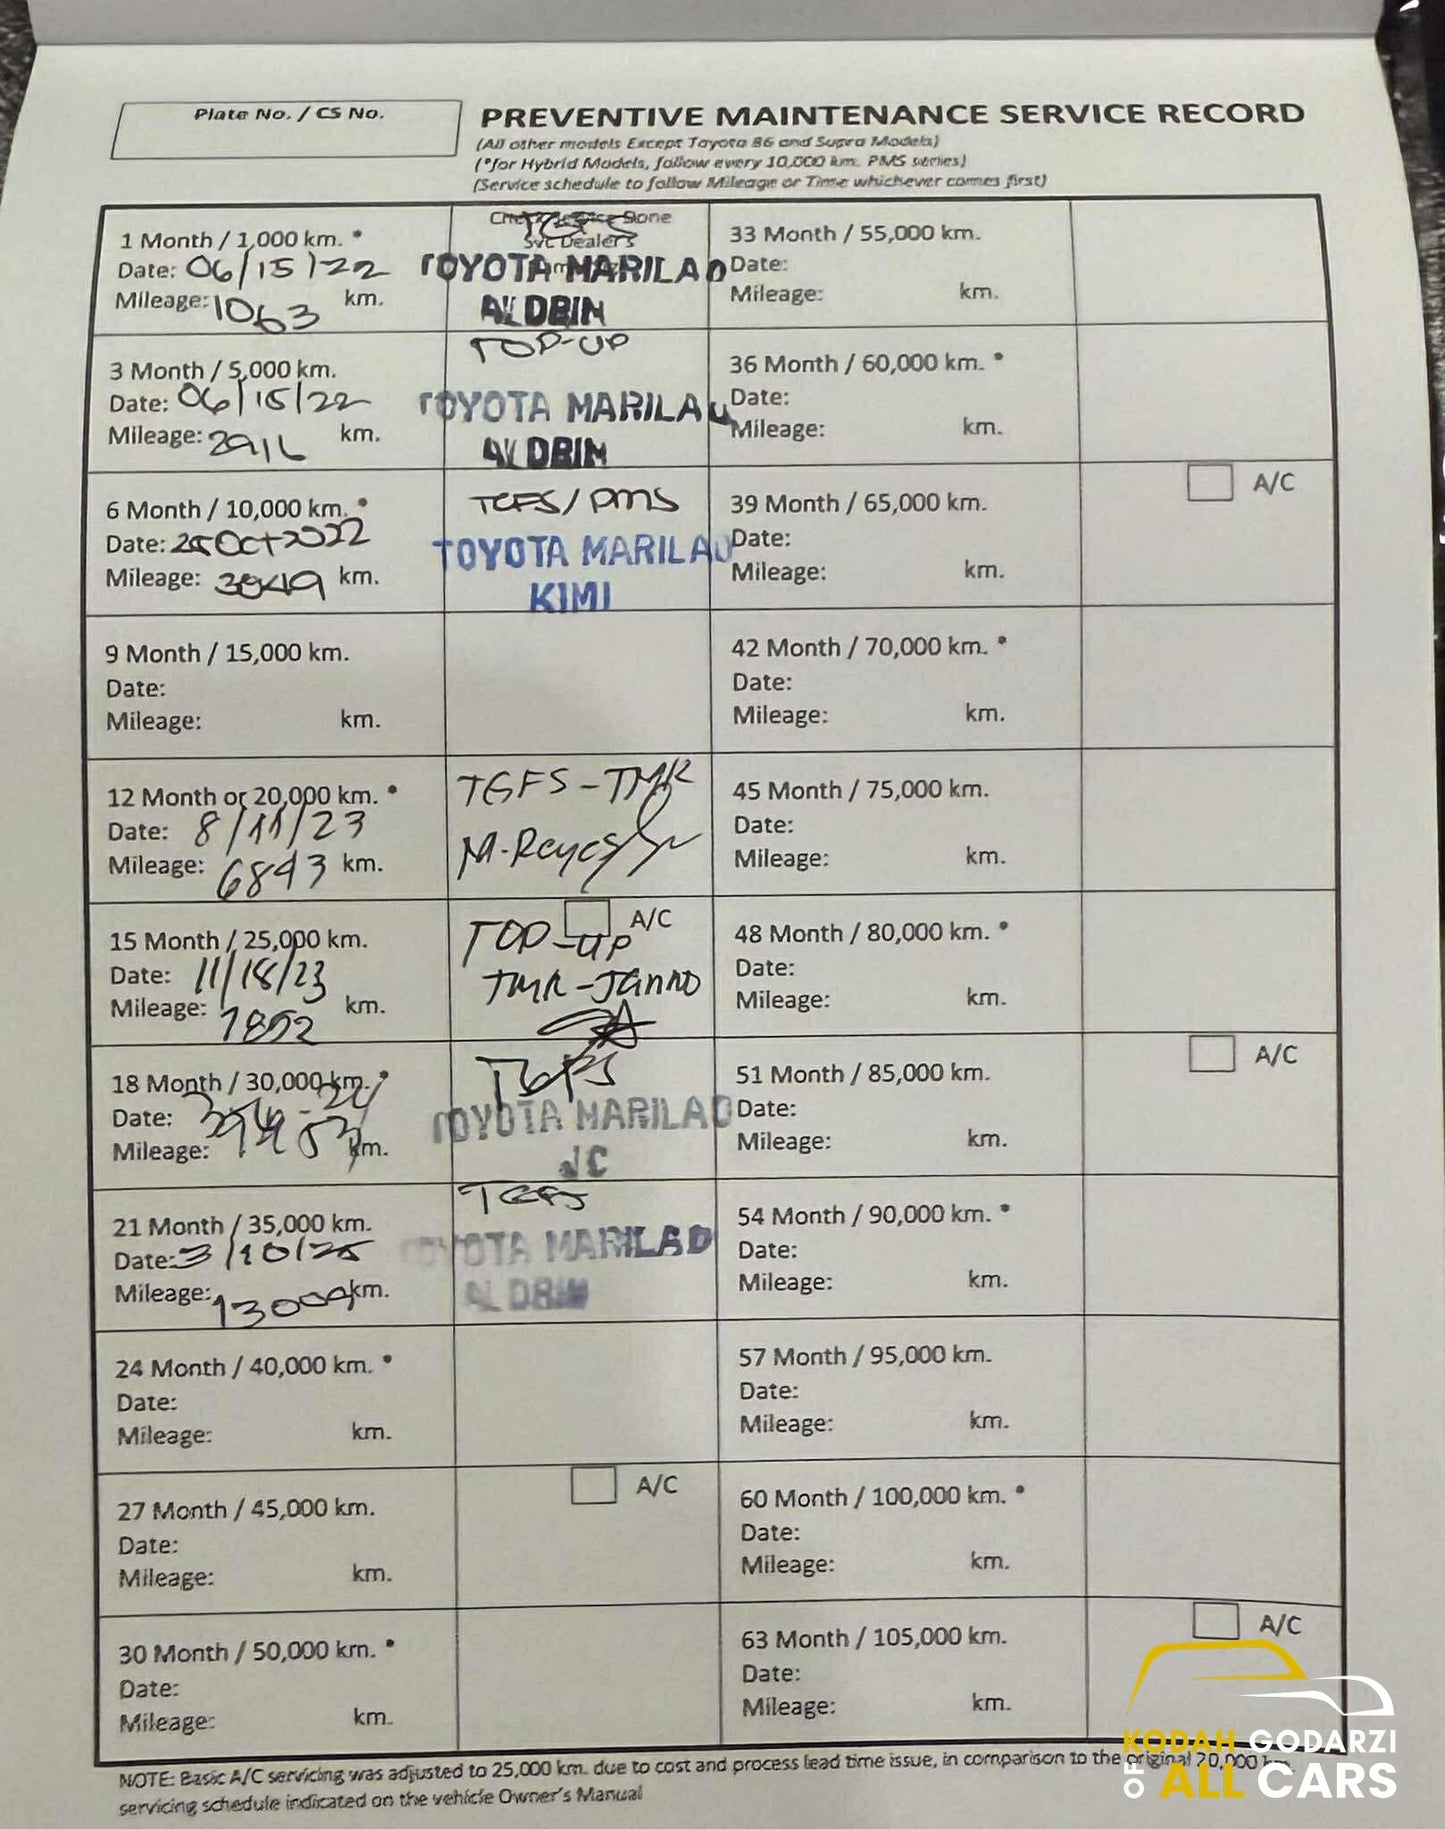 Plate No. / CS No.
PREVENTIVE MAINTENANCE SERVICE RECORD
(All other models Except Toyota 86 and Supra Models)
(*for Hybrid Models, follow every 10,000 km. PMS series)
(Service schedule to follow Mileage or Time whichever comes first)
1 Month / 1,000 km. *
Date: 06/15/22
Mileage: 1063 km.
Svc Dealer's
TOYOTA MARILAO
ALDRIN
3 Month / 5,000 km.
Date: 06/15/22
Mileage: km.
TOP-UP
TOYOTA MARILAO
ALDRIN
6 Month / 10,000 km. *
Date: 25 Oct 2022
Mileage: km.
TGFS/PMS
TOYOTA MARILAO
KIMI
9 Month / 15,000 km.
Date:
Mileage: km.
12 Month or 20,000 km. *
Date: 8/11/23
Mileage: 6843 km.
TGFS-TMR
M-Reyes
15 Month / 25,000 km.
Date: 11/18/23
Mileage: 7852 km.
A/C
TOP-UP
TMR-
18 Month / 30,000 km. *
Date:
Mileage: km.
TGFS
TOYOTA MARILAO
JC
21 Month / 35,000 km.
Date: 3/10/25
Mileage: km.
TGFS
TOYOTA MARILAO
ALDRIN
24 Month / 40,000 km. *
Date:
Mileage: km.
27 Month / 45,000 km.
Date:
Mileage: km.
A/C
30 Month / 50,000 km. *
Date:
Mileage: km.
33 Month / 55,000 km.
Date:
Mileage: km.
36 Month / 60,000 km. *
Date:
Mileage: km.
39 Month / 65,000 km.
Date:
Mileage: km.
A/C
42 Month / 70,000 km. *
Date:
Mileage: km.
45 Month / 75,000 km.
Date:
Mileage: km.
48 Month / 80,000 km. *
Date:
Mileage: km.
51 Month / 85,000 km.
Date:
Mileage: km.
A/C
54 Month / 90,000 km. *
Date:
Mileage: km.
57 Month / 95,000 km.
Date:
Mileage: km.
60 Month / 100,000 km. *
Date:
Mileage: km.
63 Month / 105,000 km.
Date:
Mileage: km.
A/C
NOTE: Basic A/C servicing was adjusted to 25,000 km. due to cost and process lead time issue, in comparison to the original 20,000 km.
servicing schedule indicated on the vehicle Owner's Manual
KODAH GODARZI
OF ALL CARS